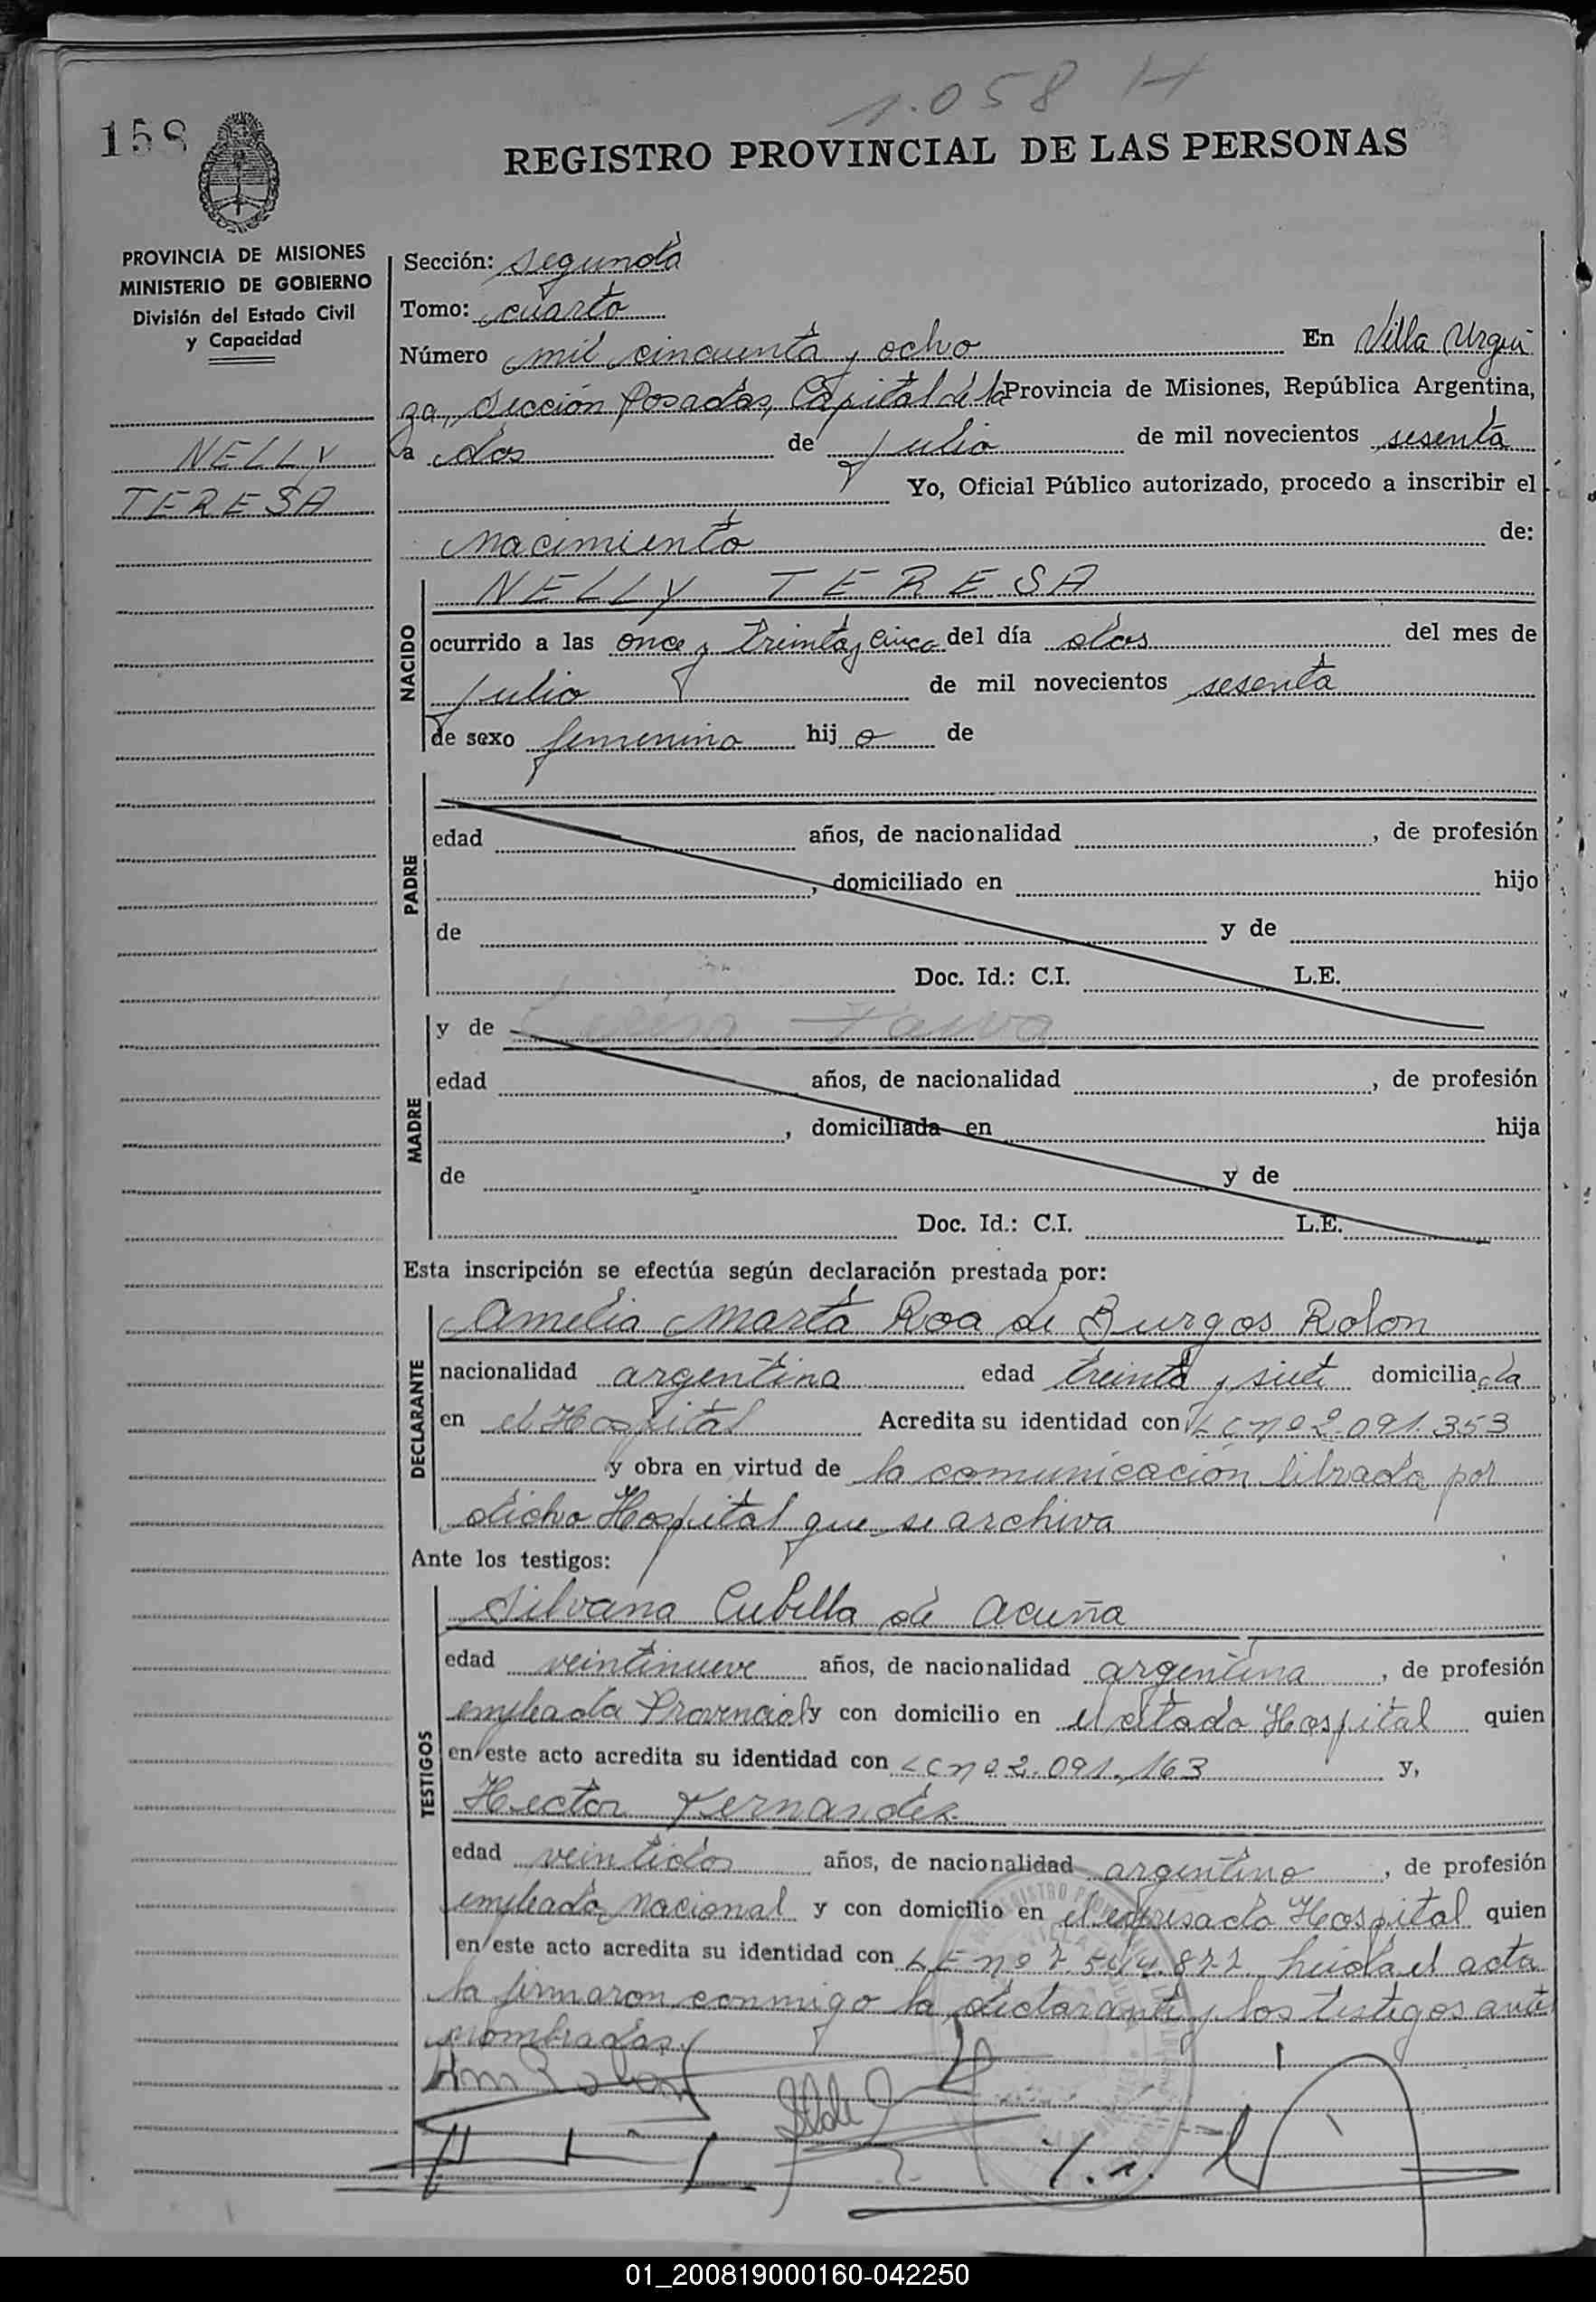 1.058 H
158
REGISTRO PROVINCIAL DE LAS PERSONAS
PROVINCIA DE MISIONES
MINISTERIO DE GOBIERNO
División del Estado Civil
y Capacidad
NELLY
TERESA
Sección: segunda
Tomo: cuarto
Número mil cincuenta y ocho En Villa Urqui
za, Sección Posadas, Capital de la Provincia de Misiones, República Argentina,
a dos de julio de mil novecientos sesenta
Yo, Oficial Público autorizado, procedo a inscribir el
nacimiento de:
NACIDO
NELLY TERESA
ocurrido a las once y treinta y cinco del día dos del mes de
julio de mil novecientos sesenta
de sexo femenino hij a de
PADRE
edad años, de nacionalidad , de profesión
, domiciliado en hijo
de y de
Doc. Id.: C.I. L.E.
MADRE
y de
edad años, de nacionalidad , de profesión
, domiciliada en hija
de y de
Doc. Id.: C.I. L.E.
Esta inscripción se efectúa según declaración prestada por:
DECLARANTE
Amelia Marta Roa de Burgos Rolon
nacionalidad argentina edad treinta y siete domicilia da
en el Hospital Acredita su identidad con L C nº 2.091.353
y obra en virtud de la comunicación librada por
dicho Hospital que se archiva
Ante los testigos:
TESTIGOS
Silvana Cubilla de Acuña
edad veintinueve años, de nacionalidad argentina , de profesión
empleada Provincial y con domicilio en el citado Hospital quien
en este acto acredita su identidad con L C nº 2.091.163 y,
Hector Fernandez
edad veintidos años, de nacionalidad argentino , de profesión
empleado nacional y con domicilio en el expresado Hospital quien
en este acto acredita su identidad con L E nº 7.544.877 leida el acta
la firmaron conmigo la declarante y los testigos ante
nombrados.
01_200819000160-042250